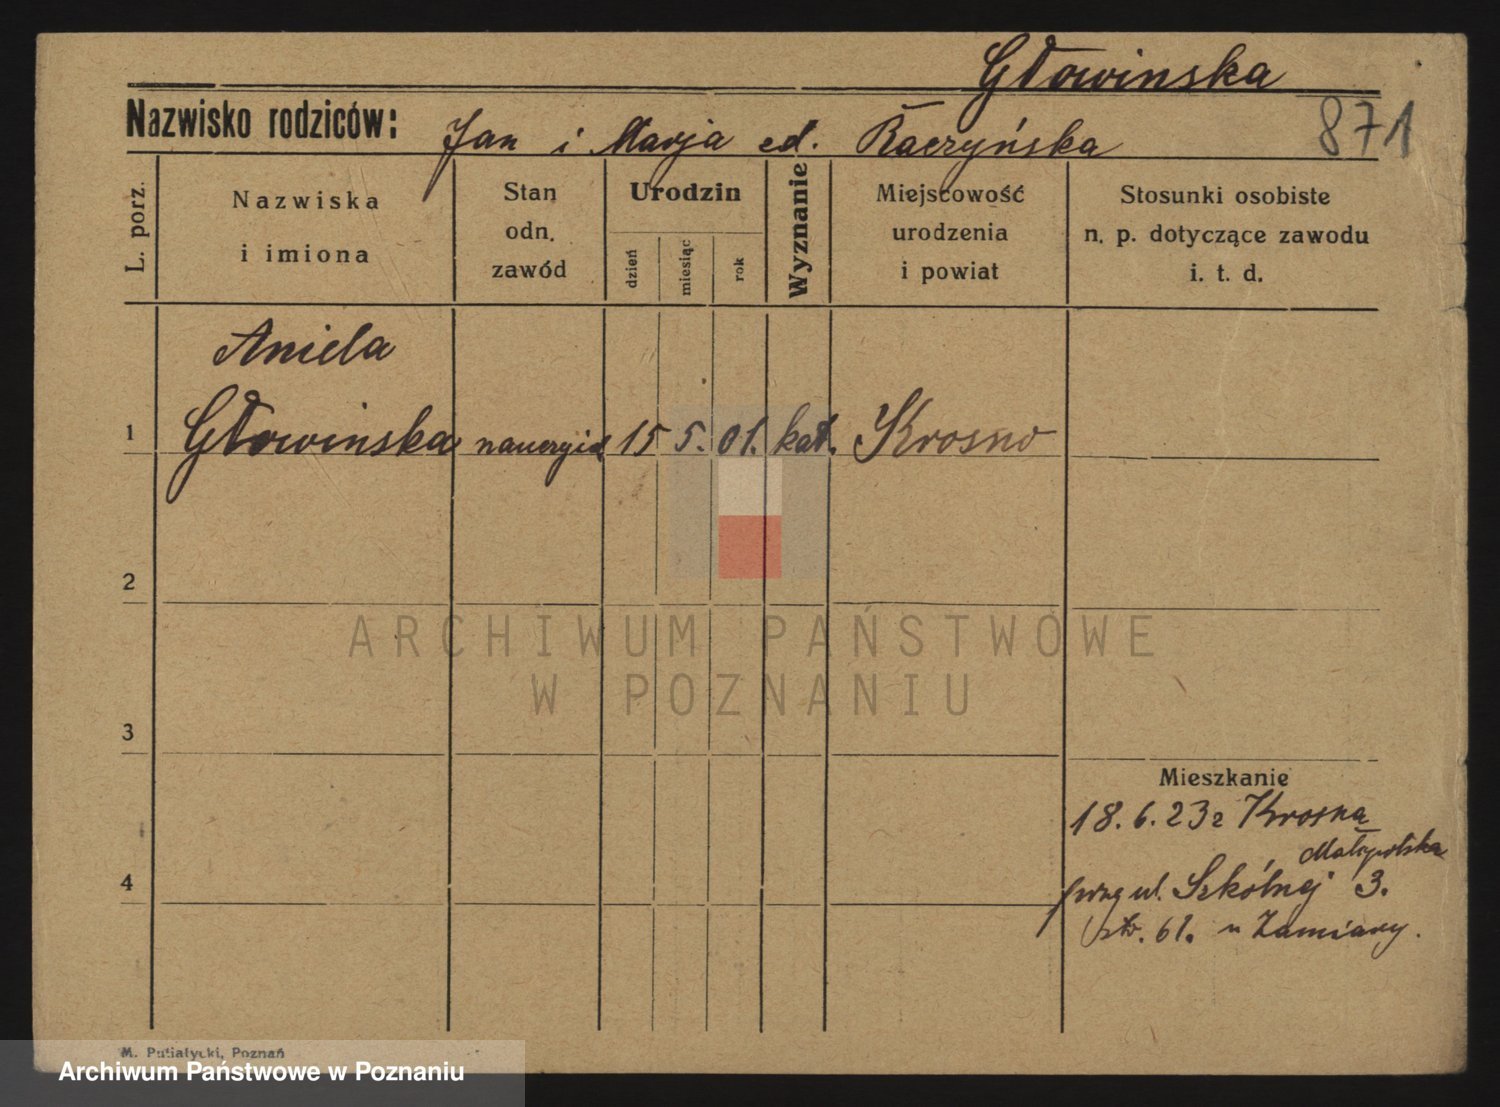 Głowinska
Nazwisko rodziców: Jan i Marja cd. Raczyńska
871
L. porz.
Nazwiska
i imiona
Stan
odn.
zawód
Urodzin
dzień
miesiąc
rok
Wyznanie
Miejscowość
urodzenia
i powiat
Stosunki osobiste
n. p. dotyczące zawodu
i. t. d.
Aniela
1 Głowinska 15 5. 01. kat. Krosno
2
3
4
Mieszkanie
18.6.23 z Krosna
Małopolska
przy ul. Szkólnej 3.
str. 61. u Zamiary.
ARCHIWUM PAŃSTWOWE
W POZNANIU
M. Putiatycki, Poznań
Archiwum Państwowe w Poznaniu